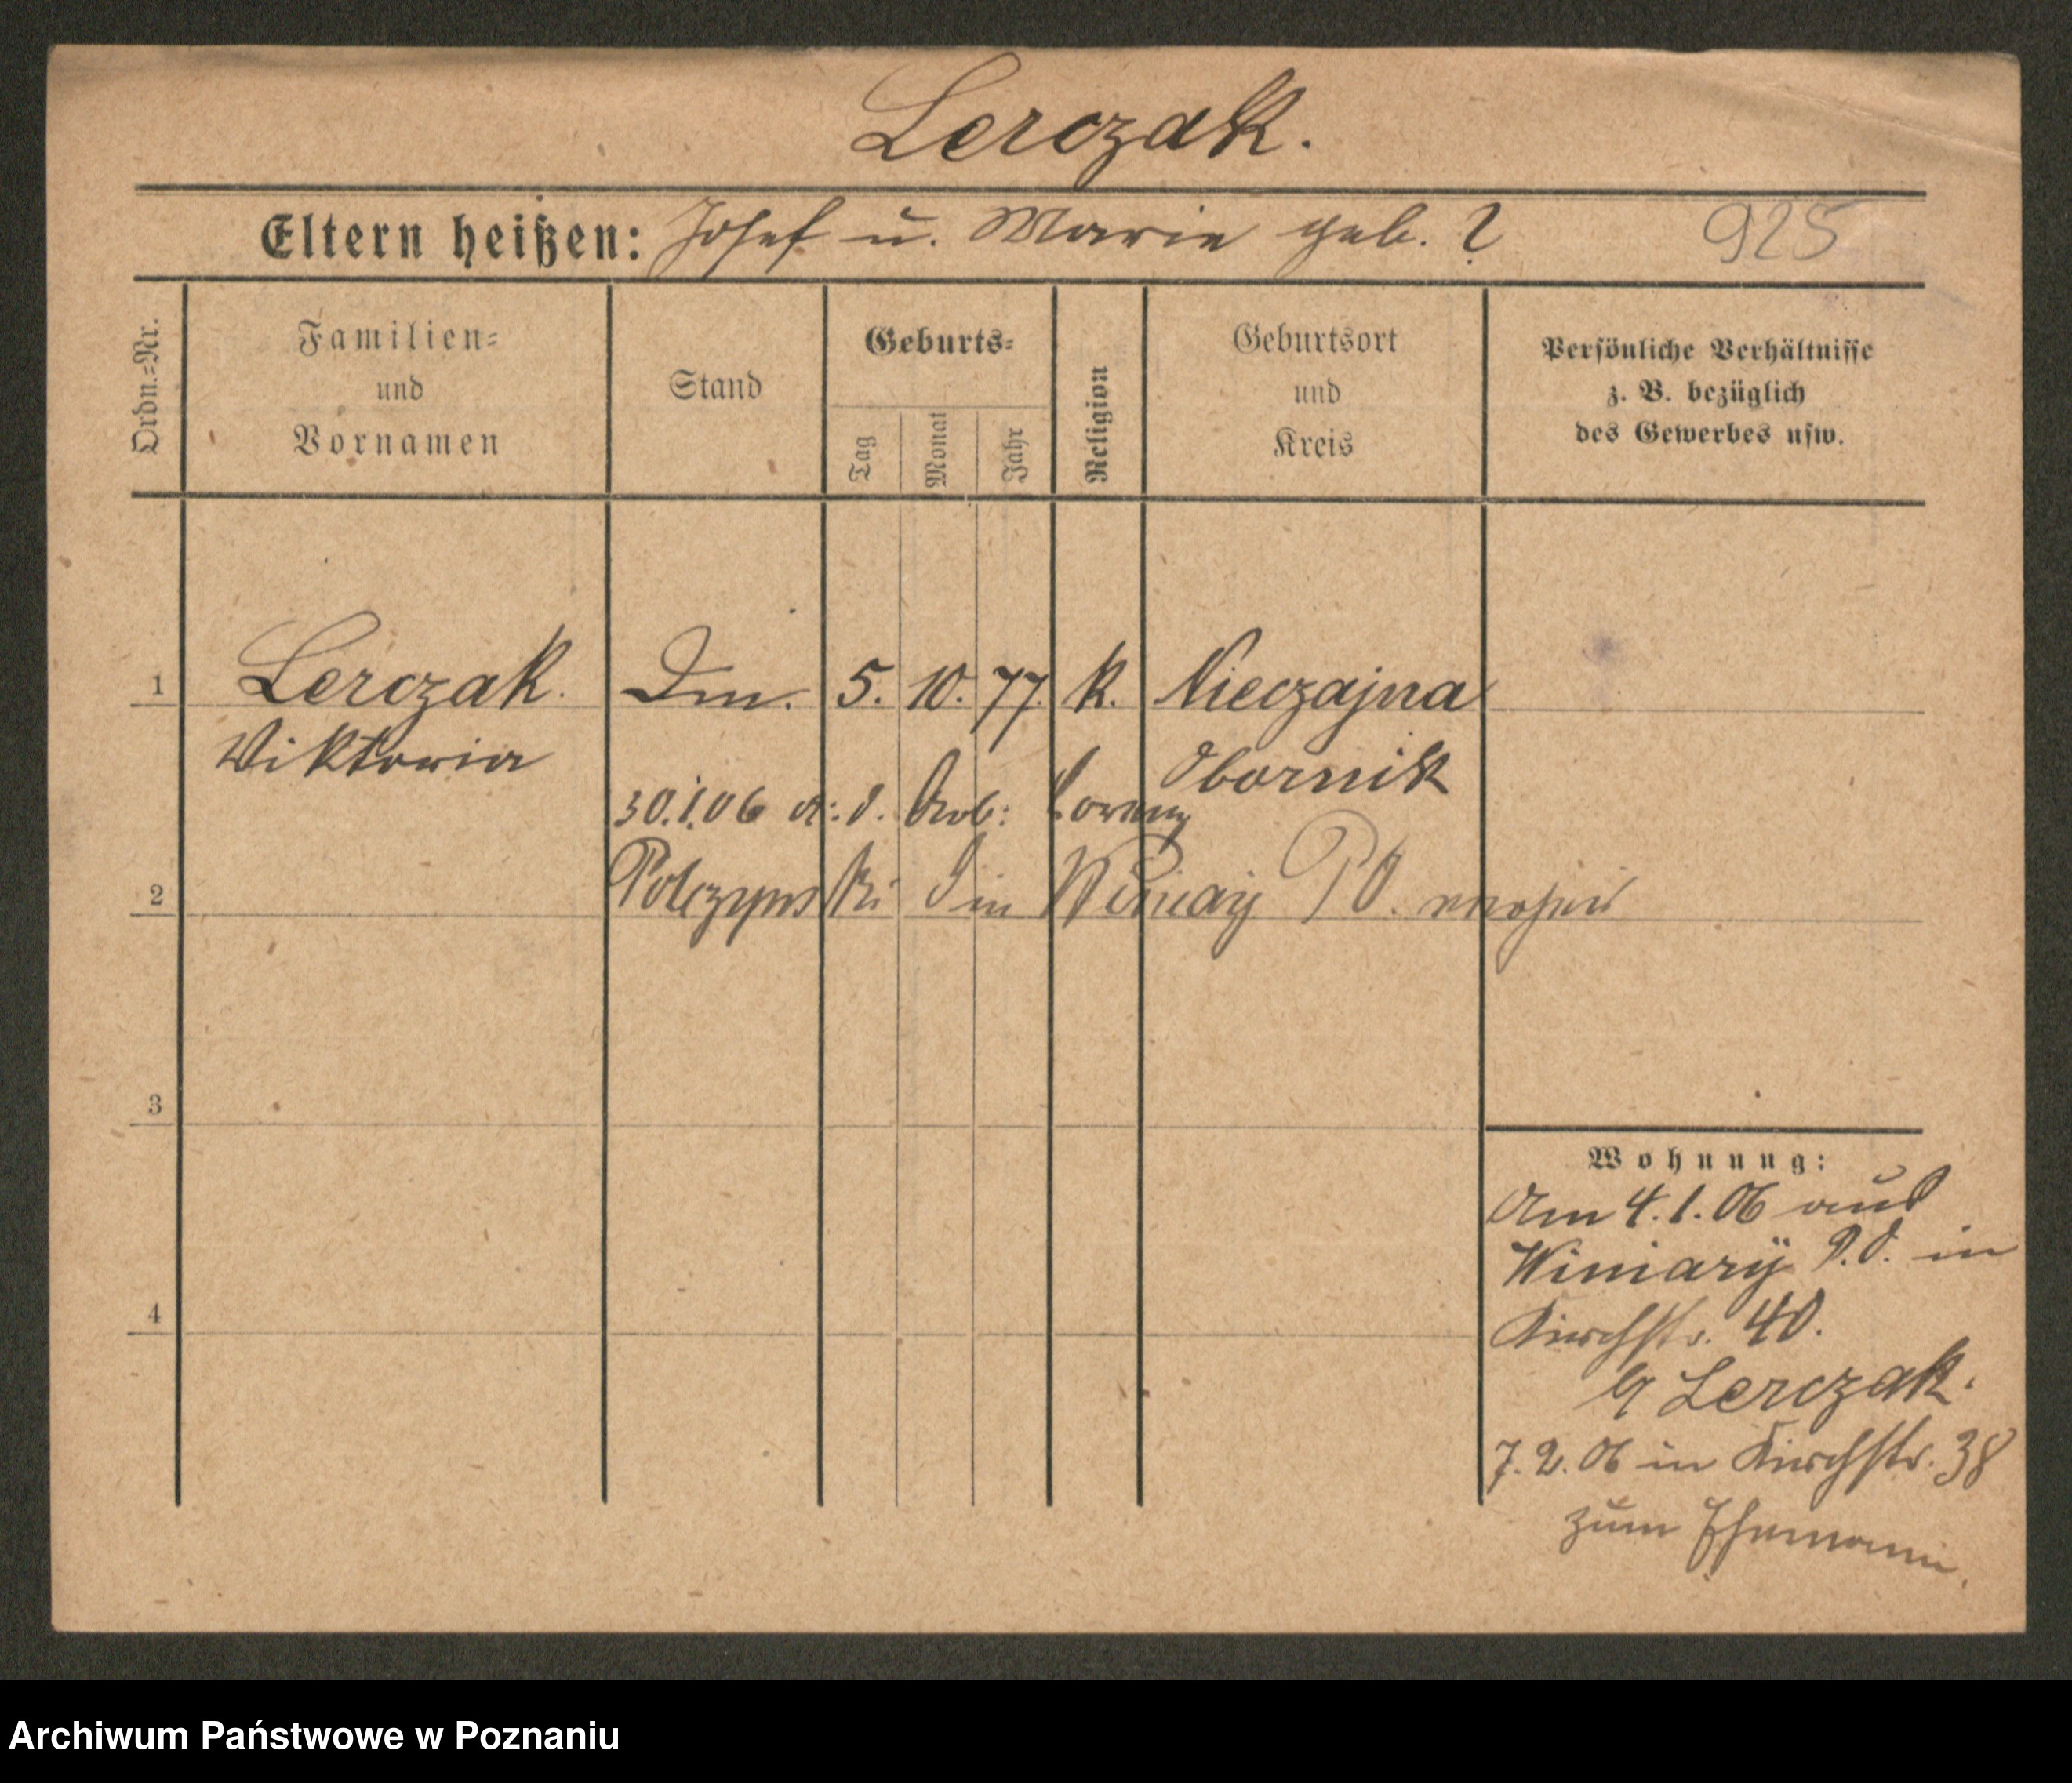 Lerczak.
Eltern heißen: Josef u. Marie geb. ?
925
Ordn.-Nr.
Familien-
und
Vornamen
Stand
Geburts-
Tag
Monat
Jahr
Religion
Geburtsort
und
Kreis
Persönliche Verhältnisse
z. B. bezüglich
des Gewerbes usw.
1 Lerczak. 5. 10. 77. k. Nieczajna
Wiktoria Obornik
30.1.06 Arb: Lorenz
2 in P O.
3
4
Wohnung:
Am 4.1.06 aus
Winiary P.O. in
Kirchstr. 40.
Lerczak.
7.2.06 in Kirchstr. 38
zum Ehemann.
Archiwum Państwowe w Poznaniu